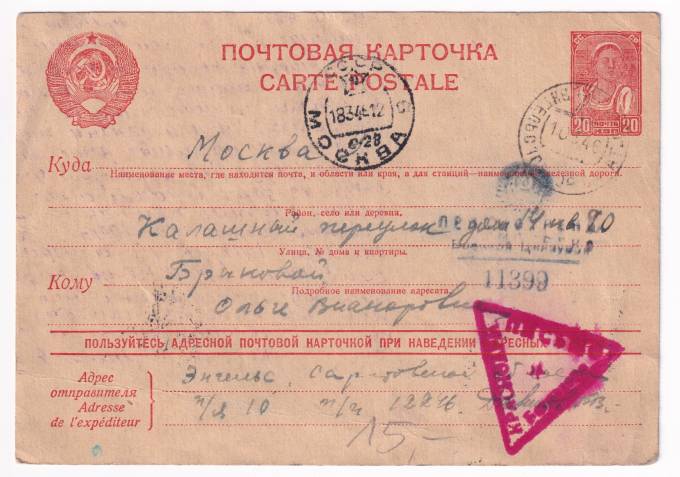 ПОЧТОВАЯ КАРТОЧКА
CARTE POSTALE
СССР
МОСКВА
9-28
20 ПОЧТА 20
КОП
Куда Москва
Наименование места, где находится почта, и области или края, а для станций—наименование железной дороги.
Район, село или деревня.
Калашный переулок дом 14 кв 80
Улица, № дома и квартиры.
Кому
Подробное наименование адресата.
Ольге
11399
ПОЛЬЗУЙТЕСЬ АДРЕСНОЙ ПОЧТОВОЙ КАРТОЧКОЙ ПРИ НАВЕДЕНИИ АДРЕСНЫХ
Адрес отправителя Энгельс, Саратовской области
Adresse de l'expéditeur п/я 10 п/ч
15-